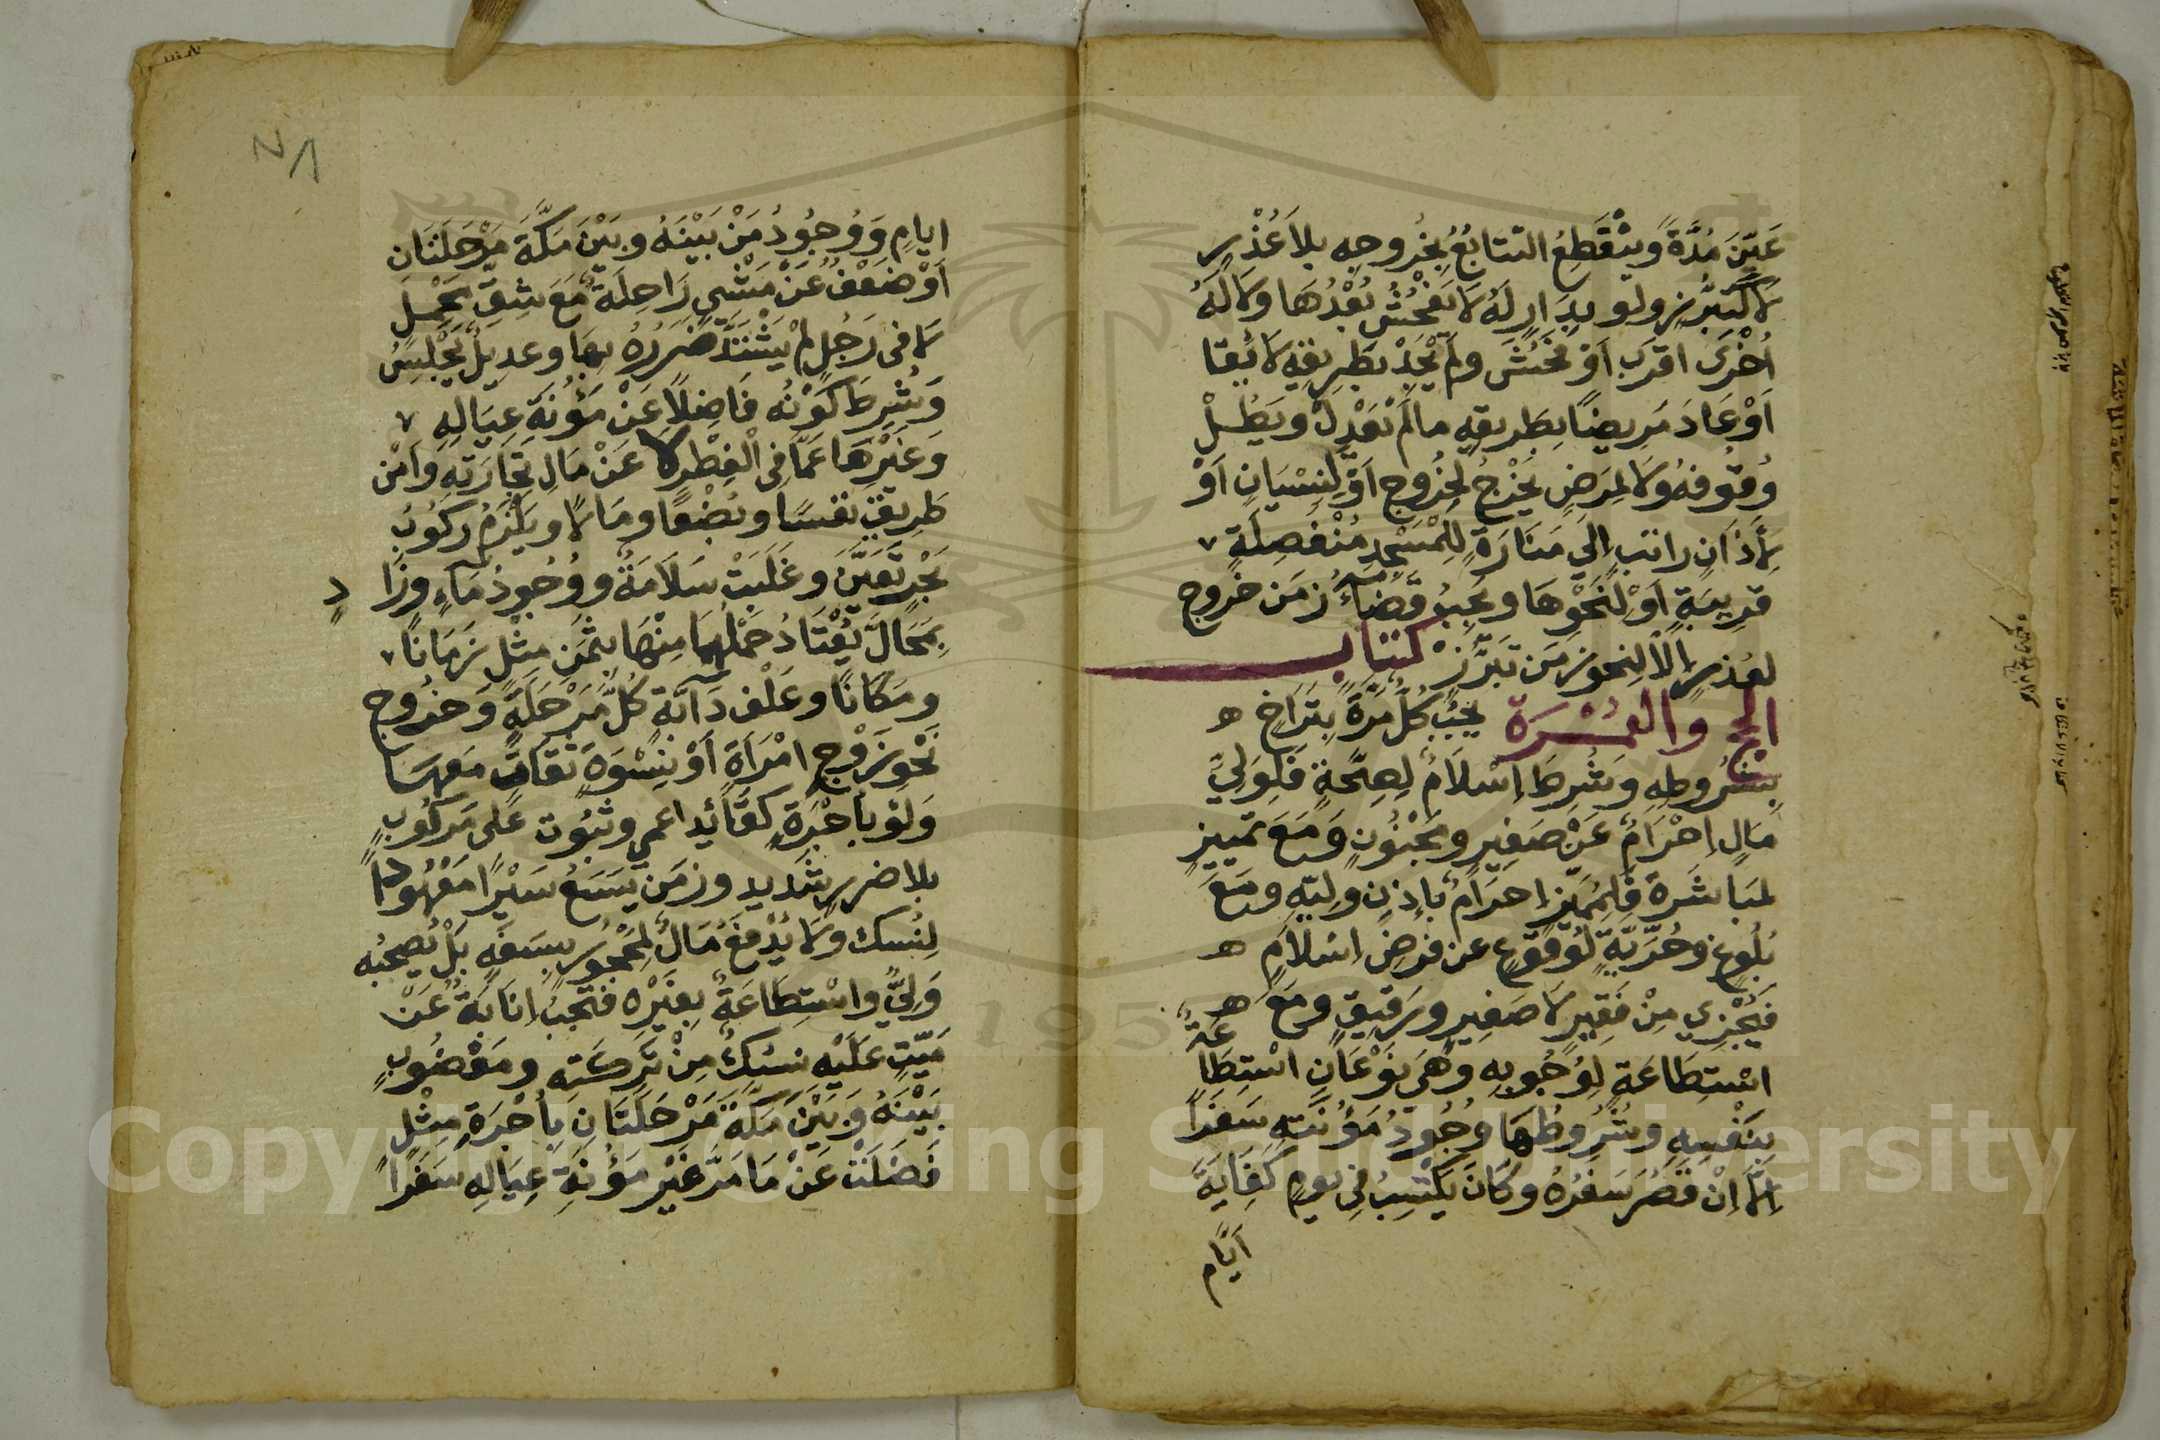 عَيَّنَ مُدَّةً وَيَنْقَطِعُ التتَابُعُ بِخُرُوجِهِ بِلَا عُذْرٍ
لَا لِتَبَرُّزٍ ولو بِدَارٍ لَهُ لَا يَفْحُشُ بُعْدُهَا ولَا لَهُ
أُخْرَى اقرَب اَوْ فَحُشَ ولَمْ يَجِدْ بِطَرِيقِهِ لَائِقًا
اَوْ عَادَ مَرِيضًا بِطَرِيقِهِ مالَمْ يَعْدِلْ ويَطُلْ
وُقُوفهُ وَلَا لِمَرَضٍ يَحْوُجُ لِخُرُوجٍ اَوْ لِنِسْيَانٍ اَوْ
لِأَذَانِ راتبٍ اِلَى مَنَارَةٍ لِلْمَسْجِدِ مُنْفَصِلَةٍ
قَرِيبَةٍ اَوْ لِنَحْوِهَا ويَجِبُ قَضَاءُ زمَن خروجٍ
لعذرٍ اِلَّا لِنحوِ زمَن تَبَرُّزٍ كتاب
الحج والعُمْرَة يَجِبُ كُلٌّ مَرَّةً بِتَرَاخٍ ه
بِشُرُوطِهِ وَشُرِطَ اِسْلَامٌ لِصِحَّةٍ فَلِوَلِيِّ
مَالٍ اِحْرَامٌ عَنْ صَغِيرٍ ومَجْنُونٍ وَمَعَ تَمْيِيزٍ
لمُبَاشَرَةٍ فَلِمُمَيِّزٍ احرَامٌ بِاِذنِ وَلِيِّهِ ومَعَ
بُلُوغٍ وحُرِّيَّةٍ لوُقُوعٍ عن فرضِ اسْلَامٍ ه
فَيُجْزِي مِنْ فَقِيرٍ لَا صَغِيرٍ ورَقِيقٍ ومَعَ ه
اسْتِطَاعَةٍ لِوُجُوبِهِ وَهِيَ نَوْعَانِ اسْتِطَاعَةٌ
بِنَفْسِهِ وشُرُوطُهَا وُجُودُ مُؤْنَتِهِ سَفَرًا
اِلَّا اِنْ قَصُرَ سَفَرُهُ وكَانَ يَكْتَسِبُ فِي يومٍ كِفَايَةَ
اَيَّام
ايامٍ وَوُجُودُ مَنْ بَيْنَهُ وبَيْنَ مَكَّةَ مَرْحَلَتَان
اَوْ ضَعُفَ عَنْ مَشْيٍ رَاحِلَةً مَعَ شِقِّ مَحْمِلٍ
لَا فى رَجُلٍ لمْ يَشْتَدَّ ضَرَرُهُ بِهَا وعديلٌ يَجْلِسُ
وَشُرِطَ كَوْنُه فَاضِلًا عَنْ مُؤْنَةِ عِيَالِهِ
وَغَيْرِهَا عَمَّا فِى الْفِطْرِ لَا عَنْ مَالِ تِجَارَتِهِ وَاَمْن
طَرِيقٍ نَفسًا وبُضْعًا ومَالًا ويَلْزَمُ رُكُوبُ
بَحْرٍ تَعَيَّنَ وغَلَبَتْ سَلَامَةٌ ووُجُودُ مَاءٍ وزَادٍ
بِمَحَالَّ يُعْتَادُ حَمْلُهُمَا مِنْهَا بِثَمَنِ مِثْلٍ زَمَانًا
ومَكَانًا وعَلَف دَابَّةٍ كُلَّ مَرْحَلَةٍ وَخُرُوج
نَحْوِ زَوْجِ امْرَأَةٍ اَوْ نِسْوَةٍ ثقاتٍ مَعهَا
وَلَوْ بِاُجْرَةٍ كقَائِدِ اعمى وثبُوت عَلَى مَرْكُوبٍ
بلا ضررٍ شديدٍ وزمَن يَسَعُ سَيْرًا مَعْهُودًا
لِنُسُك ولَا يُدْفَعُ مَالٌ لِمَحْجُورٍ بِسَفَهٍ بَلْ يَصْحَبُه
وَلِيٌّ واسْتِطَاعَةٌ بِغَيْرِه فتجبُ انَابَةٌ عَنْ
مَيِّتٍ عَلَيْهِ نُسُكٌ مِنْ تَرِكَتِهِ ومَعْضُوبٍ
بَيْنَهُ وَبَيْنَ مَكَّةَ مَرْحَلَتَانِ بِاُجْرَةِ مِثْلٍ
فَضَلَتْ عَنْ مَا مَرَّ غَيْرَ مُؤْنَةِ عِيَالِهِ سَفَرًا
Copyright © King Saud University